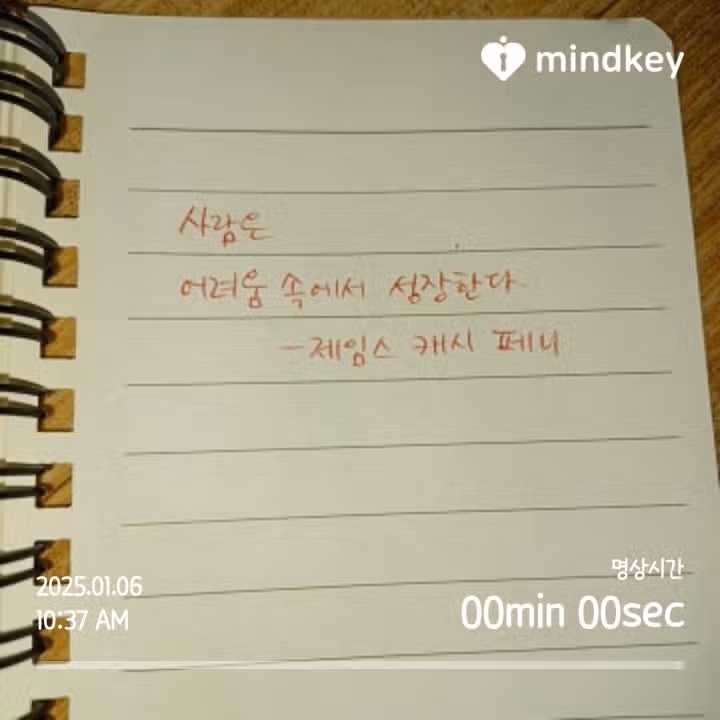 mindkey
사람은
어려움 속에서 성장한다
-제임스 캐시 페니
2025.01.06
10:37 AM
명상시간
00min 00sec